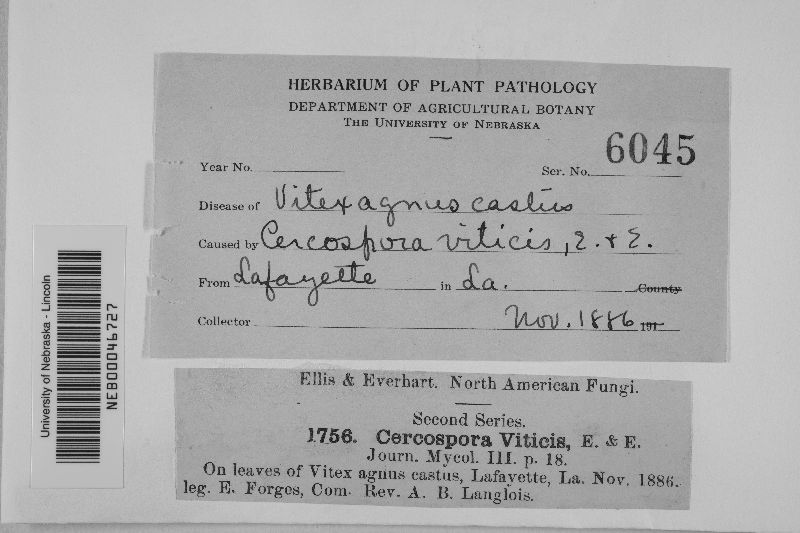 HERBARIUM OF PLANT PATHOLOGY
DEPARTMENT OF AGRICULTURAL BOTANY
THE UNIVERSITY OF NEBRASKA
6045
Year No.
Ser. No.
Disease of Vitex agnus castus
Caused by Cercospora viticis, E. & E.
From Lafayette in La. County
Collector Nov. 1886 191
University of Nebraska - Lincoln
NEB00046727
Ellis & Everhart. North American Fungi.
Second Series.
1756. Cercospora Viticis, E. & E.
Journ. Mycol. III. p. 18.
On leaves of Vitex agnus castus, Lafayette, La. Nov. 1886.
leg. E. Forges, Com. Rev. A. B. Langlois.